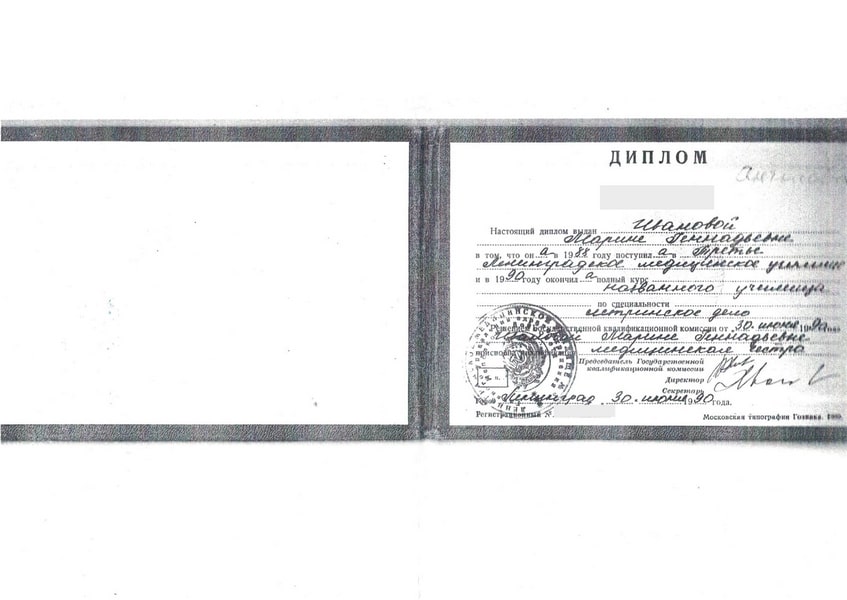 ДИПЛОМ
Настоящий диплом выдан Ивановой
Марине Геннадьевне
в том, что он а в 1988 году поступил а в Третье
Ленинградское медицинское училище
и в 1990 году окончил а полный курс
названного училища
по специальности
сестринское дело
Решением Государственной квалификационной комиссии от 30 июня 1990
Ивановой Марине Геннадьевне
присвоена квалификация медицинская сестра
Председатель Государственной
квалификационной комиссии
Директор
Секретарь
М. П.
Город Ленинград 30 июня 1990 года.
Регистрационный №
Московская типография Гознака. 1989.